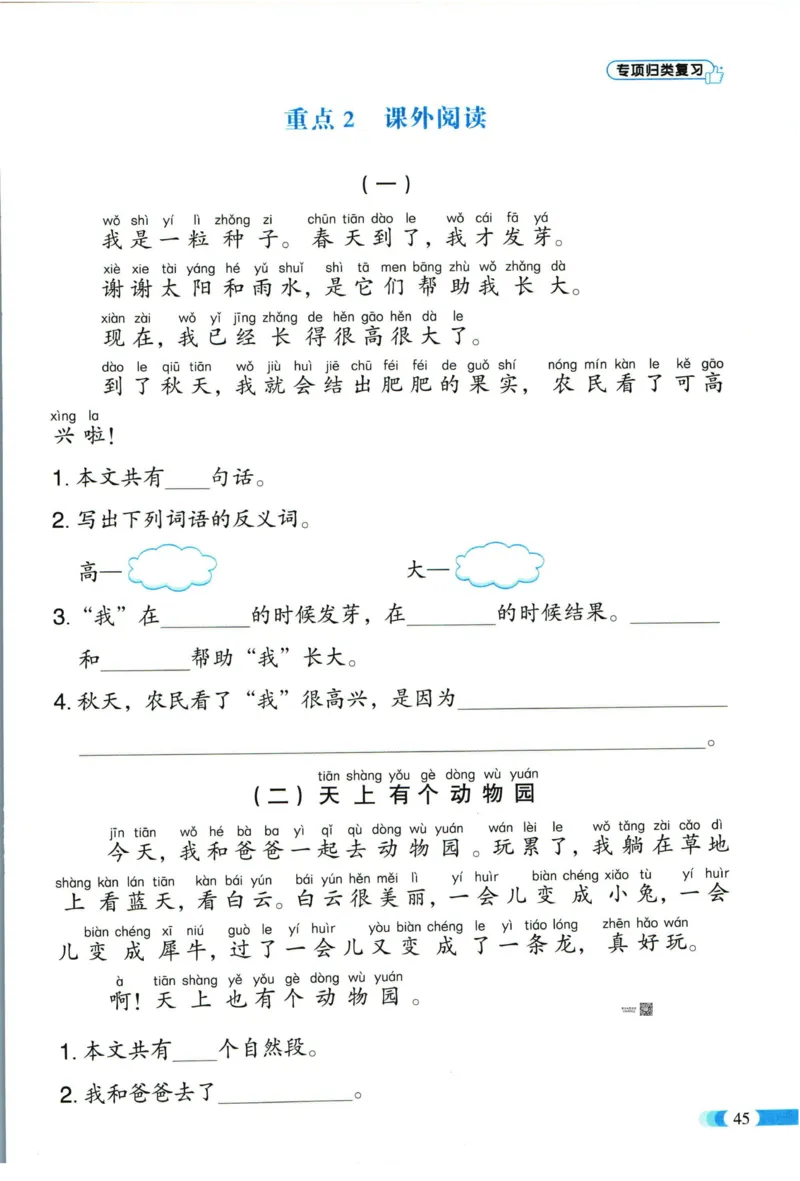 专项归类复习
重点 2 课外阅读
（一）
wǒ shì yí lì zhǒng zi chūn tiān dào le wǒ cái fā yá
我是一粒种子。春天到了，我才发芽。
xiè xie tài yáng hé yǔ shuǐ shì tā men bāng zhù wǒ zhǎng dà
谢谢太阳和雨水，是它们帮助我长大。
xiàn zài wǒ yǐ jīng zhǎng de hěn gāo hěn dà le
现在，我已经长得很高很大了。
dào le qiū tiān wǒ jiù huì jiē chū féi féi de guǒ shí nóng mín kàn le kě gāo
到了秋天，我就会结出肥肥的果实，农民看了可高
xìng la
兴啦！
1. 本文共有____句话。
2. 写出下列词语的反义词。
高— 大—
3. “我”在________的时候发芽，在________的时候结果。________
和________帮助“我”长大。
4. 秋天，农民看了“我”很高兴，是因为________________________
________________________________________________________。
tiān shàng yǒu gè dòng wù yuán
（二）天上有个动物园
jīn tiān wǒ hé bà ba yì qǐ qù dòng wù yuán wán lèi le wǒ tǎng zài cǎo dì
今天，我和爸爸一起去动物园。玩累了，我躺在草地
shàng kàn lán tiān kàn bái yún bái yún hěn měi lì yí huìr biàn chéng xiǎo tù yí huìr
上看蓝天，看白云。白云很美丽，一会儿变成小兔，一会
biàn chéng xī niú guò le yí huìr yòu biàn chéng le yì tiáo lóng zhēn hǎo wán
儿变成犀牛，过了一会儿又变成了一条龙，真好玩。
à tiān shàng yě yǒu gè dòng wù yuán
啊！天上也有个动物园。
1. 本文共有____个自然段。
2. 我和爸爸去了____________。
45